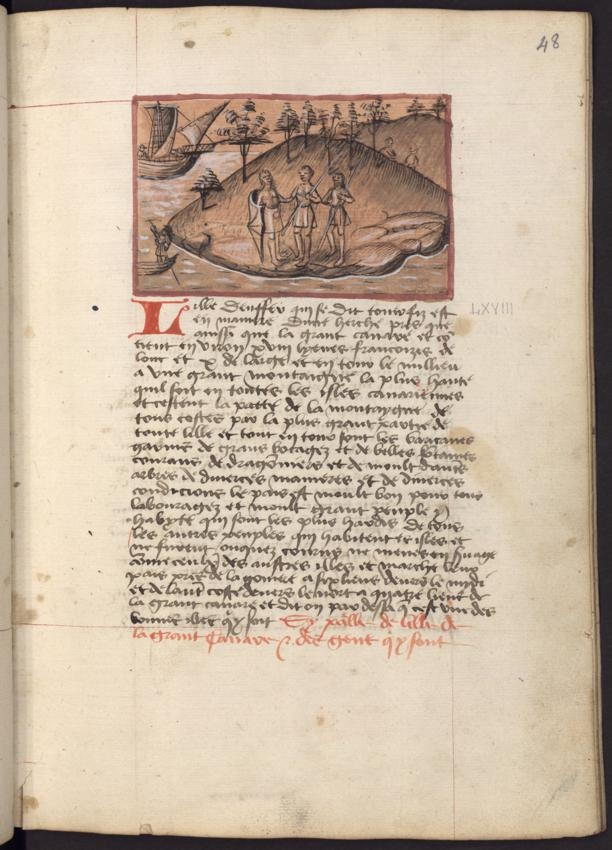 48
LXVIII
Lille denffer qui se dit tonerfiz est
en maniere dune herche pres que
aussi que la grant canare et con
tient environ xviii lieues francoizes de
lonc et x de large et en tout le millieu
a une grant montaigne la plus haute
quil soit en toutes les isles canariennes
et cestent la patte de la montaygne de
tous costes par la plus grant partie de
toute lille et tout en tour sont les baricaves
garnie de grans bocagez et de belles fontaines
courans de dragonniers et de moult dautres
arbres de diverces manieres et de diverces
condicions le pais est moult bon pour tous
labouragez et moult grant peuple y
habyte qui sont les plus hardis de tous
les autres peuples qui habitent es isles et
ne furent onquez couruz ne menes en servage
comme ceulx des austres illes et marche leur
pais pres de la gomere a six lieus devers le midi
et de lautre coste devers le nort a quatre lieus de
la grant canare et dit on par dessa que cest une des
bonnes illes qui y soit Cy parlle de lille de
la grant Canare et des gent qui y sont